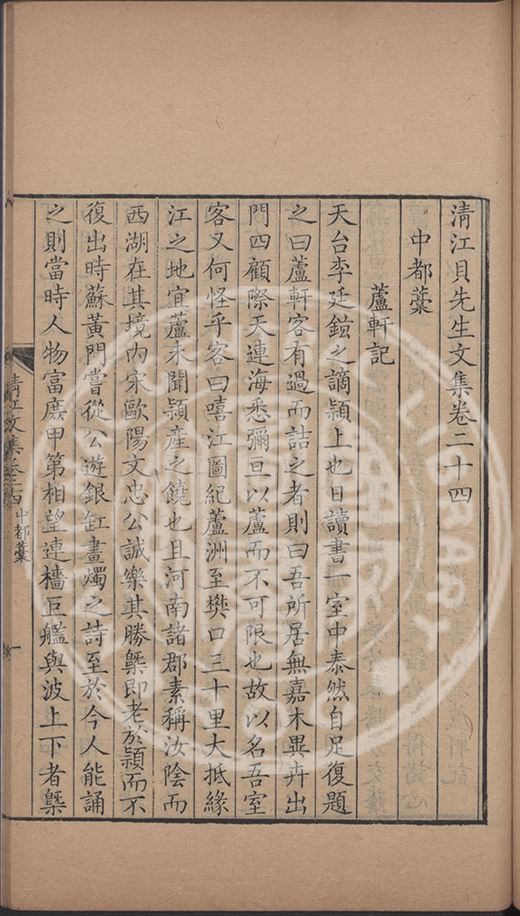 清江貝先生文集卷二十四
中都藁
蘆軒記
天台李廷鉉之謫潁上也日讀書一室中泰然自足復題
之曰蘆軒客有過而詰之者則曰吾所居無嘉木異卉出
門四顧際天連海悉彌亘以蘆而不可限也故以名吾室
客又何怪乎客曰嘻江圖紀蘆洲至樊口三十里大抵緣
江之地宜蘆未聞潁產之饒也且河南諸郡素稱汝陰而
西湖在其境內宋歐陽文忠公誠樂其勝槩即老於潁而不
復出時蘇黃門嘗從公遊銀缸畫燭之詩至於今人能誦
之則當時人物富庶甲第相望連檣巨艦與波上下者槩
清江文集卷二十四 中都藁 一